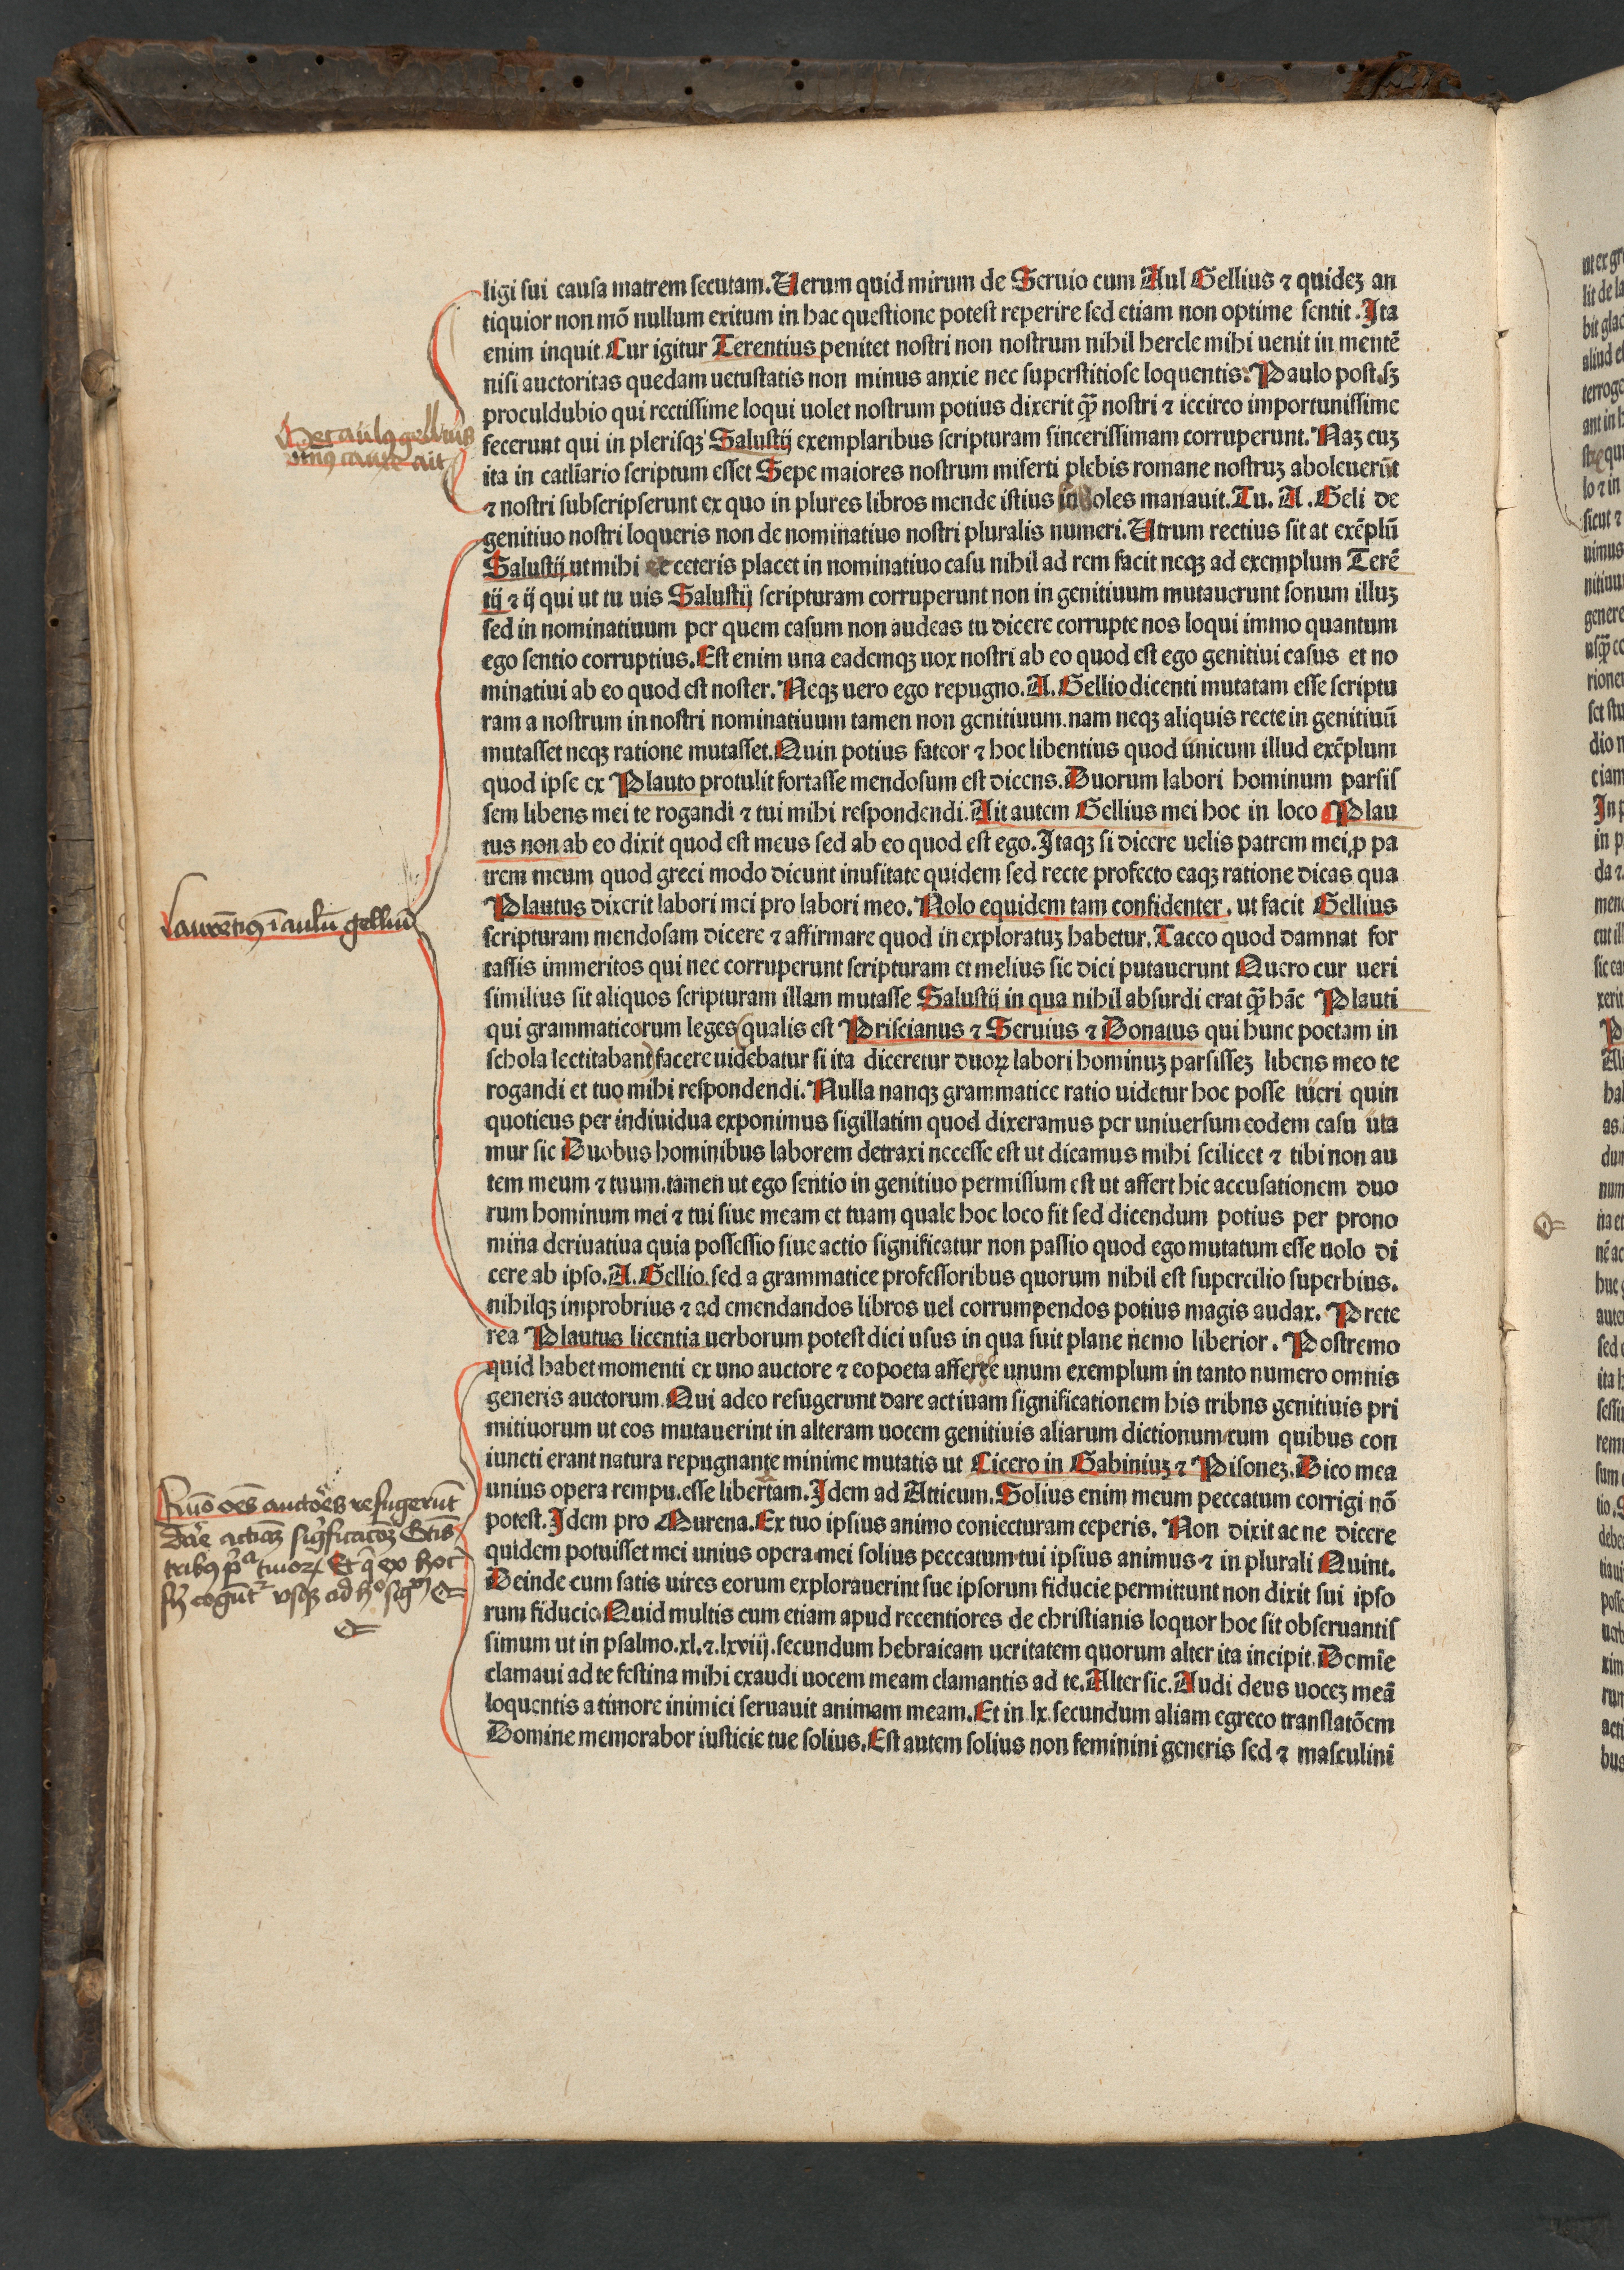 ligi sui causa matrem secutam. Uerum quid mirum de Seruio cum Aul Gellius ⁊ quideꝫ an
tiquior non mõ nullum exitum in hac questione potest reperire sed etiam non optime sentit. Ita
enim inquit. Cur igitur Terentius penitet nostri non nostrum nihil hercle mihi uenit in mentẽ
nisi auctoritas quedam uetustatis non minus anxie nec superstitiose loquentis. Paulo post. sꝫ
proculdubio qui rectissime loqui uolet nostrum potius dixerit ꝙ̃ nostri ⁊ iccirco importunissime
Hec aulꝰ gellius
fecerunt qui in plerisqꝫ Salustij exemplaribus scripturam sincerissimam corruperunt. Naꝫ cuꝫ
ait
ita in catliario scriptum esset Sepe maiores nostrum miserti plebis romane nostruꝫ aboleuerũt
⁊ nostri subscripserunt ex quo in plures libros mende istius soboles manauit. Tu. A. Geli de
genitiuo nostri loqueris non de nominatiuo nostri pluralis numeri. Utrum rectius sit at exẽplũ
Salustij ut mihi et ceteris placet in nominatiuo casu nihil ad rem facit neqꝫ ad exemplum Terẽ
tij ⁊ ij qui ut tu uis Salustij scripturam corruperunt non in genitiuum mutauerunt sonum illuꝫ
sed in nominatiuum per quem casum non audeas tu dicere corrupte nos loqui immo quantum
ego sentio corruptius. Est enim una eademqꝫ uox nostri ab eo quod est ego genitiui casus et no
minatiui ab eo quod est noster. Neqꝫ uero ego repugno. A. Gellio dicenti mutatam esse scriptu
ram a nostrum in nostri nominatiuum tamen non genitiuum. nam neqꝫ aliquis recte in genitiuũ
mutasset neqꝫ ratione mutasset. Quin potius fateor ⁊ hoc libentius quod unicum illud exẽplum
quod ipse ex Plauto protulit fortasse mendosum est dicens. Duorum labori hominum parsis
sem libens mei te rogandi ⁊ tui mihi respondendi. Ait autem Gellius mei hoc in loco Plau
tus non ab eo dixit quod est meus sed ab eo quod est ego. Itaqꝫ si dicere uelis patrem mei ꝓ pa
trem meum quod greci modo dicunt inusitate quidem sed recte profecto eaqꝫ ratione dicas qua
Plautus dixerit labori mei pro labori meo. Nolo equidem tam confidenter. ut facit Gellius
Laurẽtiꝰ ĩ aulũ gelliũ
scripturam mendosam dicere ⁊ affirmare quod in exploratuꝫ habetur. Taceo quod damnat for
tassis immeritos qui nec corruperunt scripturam et melius sic dici putauerunt Quero cur ueri
similius sit aliquos scripturam illam mutasse Salustij in qua nihil absurdi erat ꝙ̃ hãc Plauti
qui grammaticorum leges (qualis est Priscianus ⁊ Seruius ⁊ Donatus qui hunc poetam in
schola lectitabant) facere uidebatur si ita diceretur duoꝝ labori hominuꝫ parsisseꝫ libens meo te
rogandi et tuo mihi respondendi. Nulla nanqꝫ grammatice ratio uidetur hoc posse tueri quin
quotieus per indiuidua exponimus sigillatim quod dixeramus per uniuersum eodem casu uta
mur sic Duobus hominibus laborem detraxi necesse est ut dicamus mihi scilicet ⁊ tibi non au
tem meum ⁊ tuum. tamen ut ego sentio in genitiuo permissum est ut affert hic accusationem duo
rum hominum mei ⁊ tui siue meam et tuam quale hoc loco fit sed dicendum potius per prono
mina deriuatiua quia possessio siue actio significatur non passio quod ego mutatum esse uolo di
cere ab ipso. A. Gellio. sed a grammatice professoribus quorum nihil est supercilio superbius.
nihilqꝫ improbrius ⁊ ad emendandos libros uel corrumpendos potius magis audax. Prete
rea Plautus licentia uerborum potest dici usus in qua fuit plane nemo liberior. Postremo
quid habet momenti ex uno auctore ⁊ eo poeta afferre unum exemplum in tanto numero omnis
generis auctorum. Qui adeo refugerunt dare actiuam significationem his tribns genitiuis pri
mitiuorum ut eos mutauerint in alteram uocem genitiuis aliarum dictionum cum quibus con
iuncti erant natura repugnante minime mutatis ut Cicero in Gabiniuꝫ ⁊ Pisoneꝫ. Dico mea
unius opera rempu. esse libertam. Idem ad Atticum. Solius enim meum peccatum corrigi nõ
potest. Idem pro Murena. Ex tuo ipsius animo coniecturam ceperis. Non dixit ac ne dicere
quidem potuisset mei unius opera mei solius peccatum tui ipsius animus ⁊ in plurali Quint.
Deinde cum satis uires eorum explorauerint sue ipsorum fiducie permittunt non dixit sui ipso
rum fiducie. Quid multis cum etiam apud recentiores de christianis loquor hoc sit obseruantis
simum ut in psalmo. xl. ⁊. lxviij. secundum hebraicam ueritatem quorum alter ita incipit. Domĩe
clamaui ad te festina mihi exaudi uocem meam clamantis ad te. Alter sic. Audi deus uoceꝫ meã
loquentis a timore inimici seruauit animam meam. Et in lx secundum aliam egreco translatõem
Domine memorabor iusticie tue solius. Est autem solius non feminini generis sed ⁊ masculini